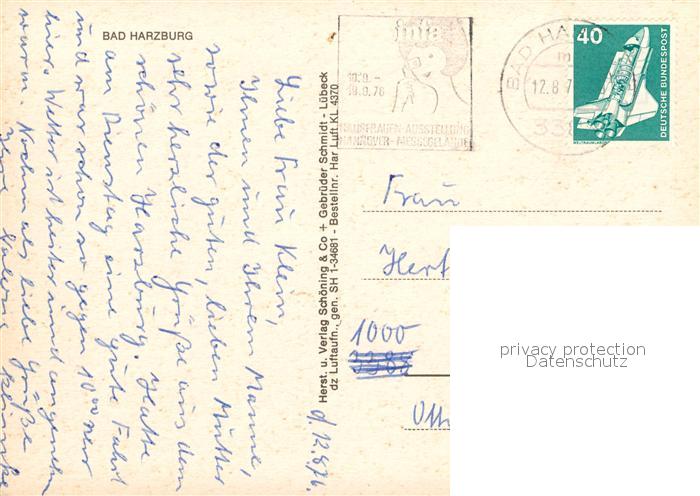 BAD HARZBURG
d. 12.8.76.
Liebe Frau Klein,
Ihnen und Ihrem Manne,
sowie der guten, lieben Mutter
sehr herzliche Grüße aus dem
schönen Harzburg. Hatte
am Dienstag eine gute Fahrt
und war schon so gegen 1000 Uhr
hier. Wetter ist heiter und angenehm
warm. Nochmals liebe Grüße
Herst. u. Verlag Schöning & Co + Gebrüder Schmidt - Lübeck
dz Luftaufn., gen. SH 1-34681 - Bestellnr. Har Luft KL 4370
infa
10.9.-
19.9.76
HAUSFRAUEN-AUSSTELLUNG
HANNOVER-MESSEGELÄNDE
BAD HA
12.8.7
40
DEUTSCHE BUNDESPOST
WELTRAUMLABOR
Frau
Hert
1000
Otto
privacy protection
Datenschutz